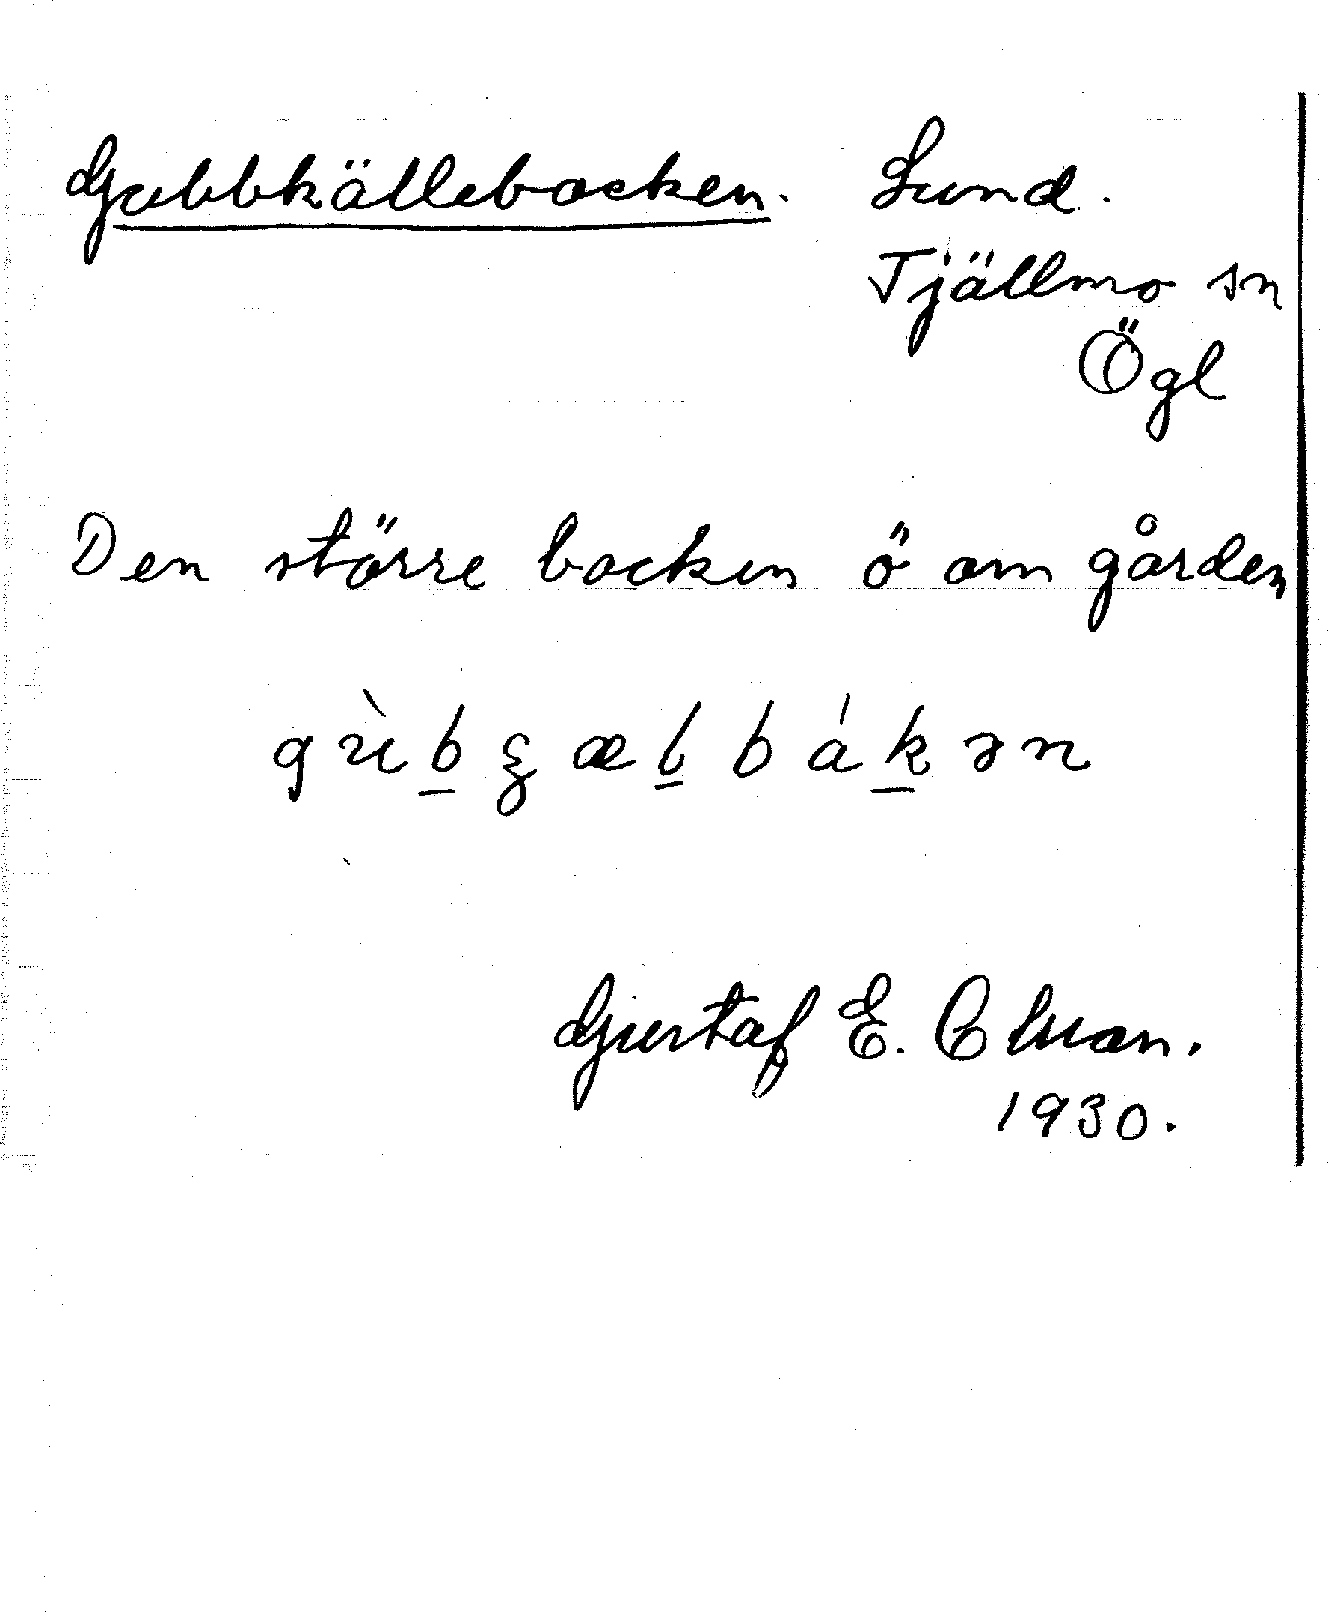 Gubbkällebacken. Lund.
Tjällmo sn
Ögl
Den större backen ö om gården
Gustaf E.
1930.